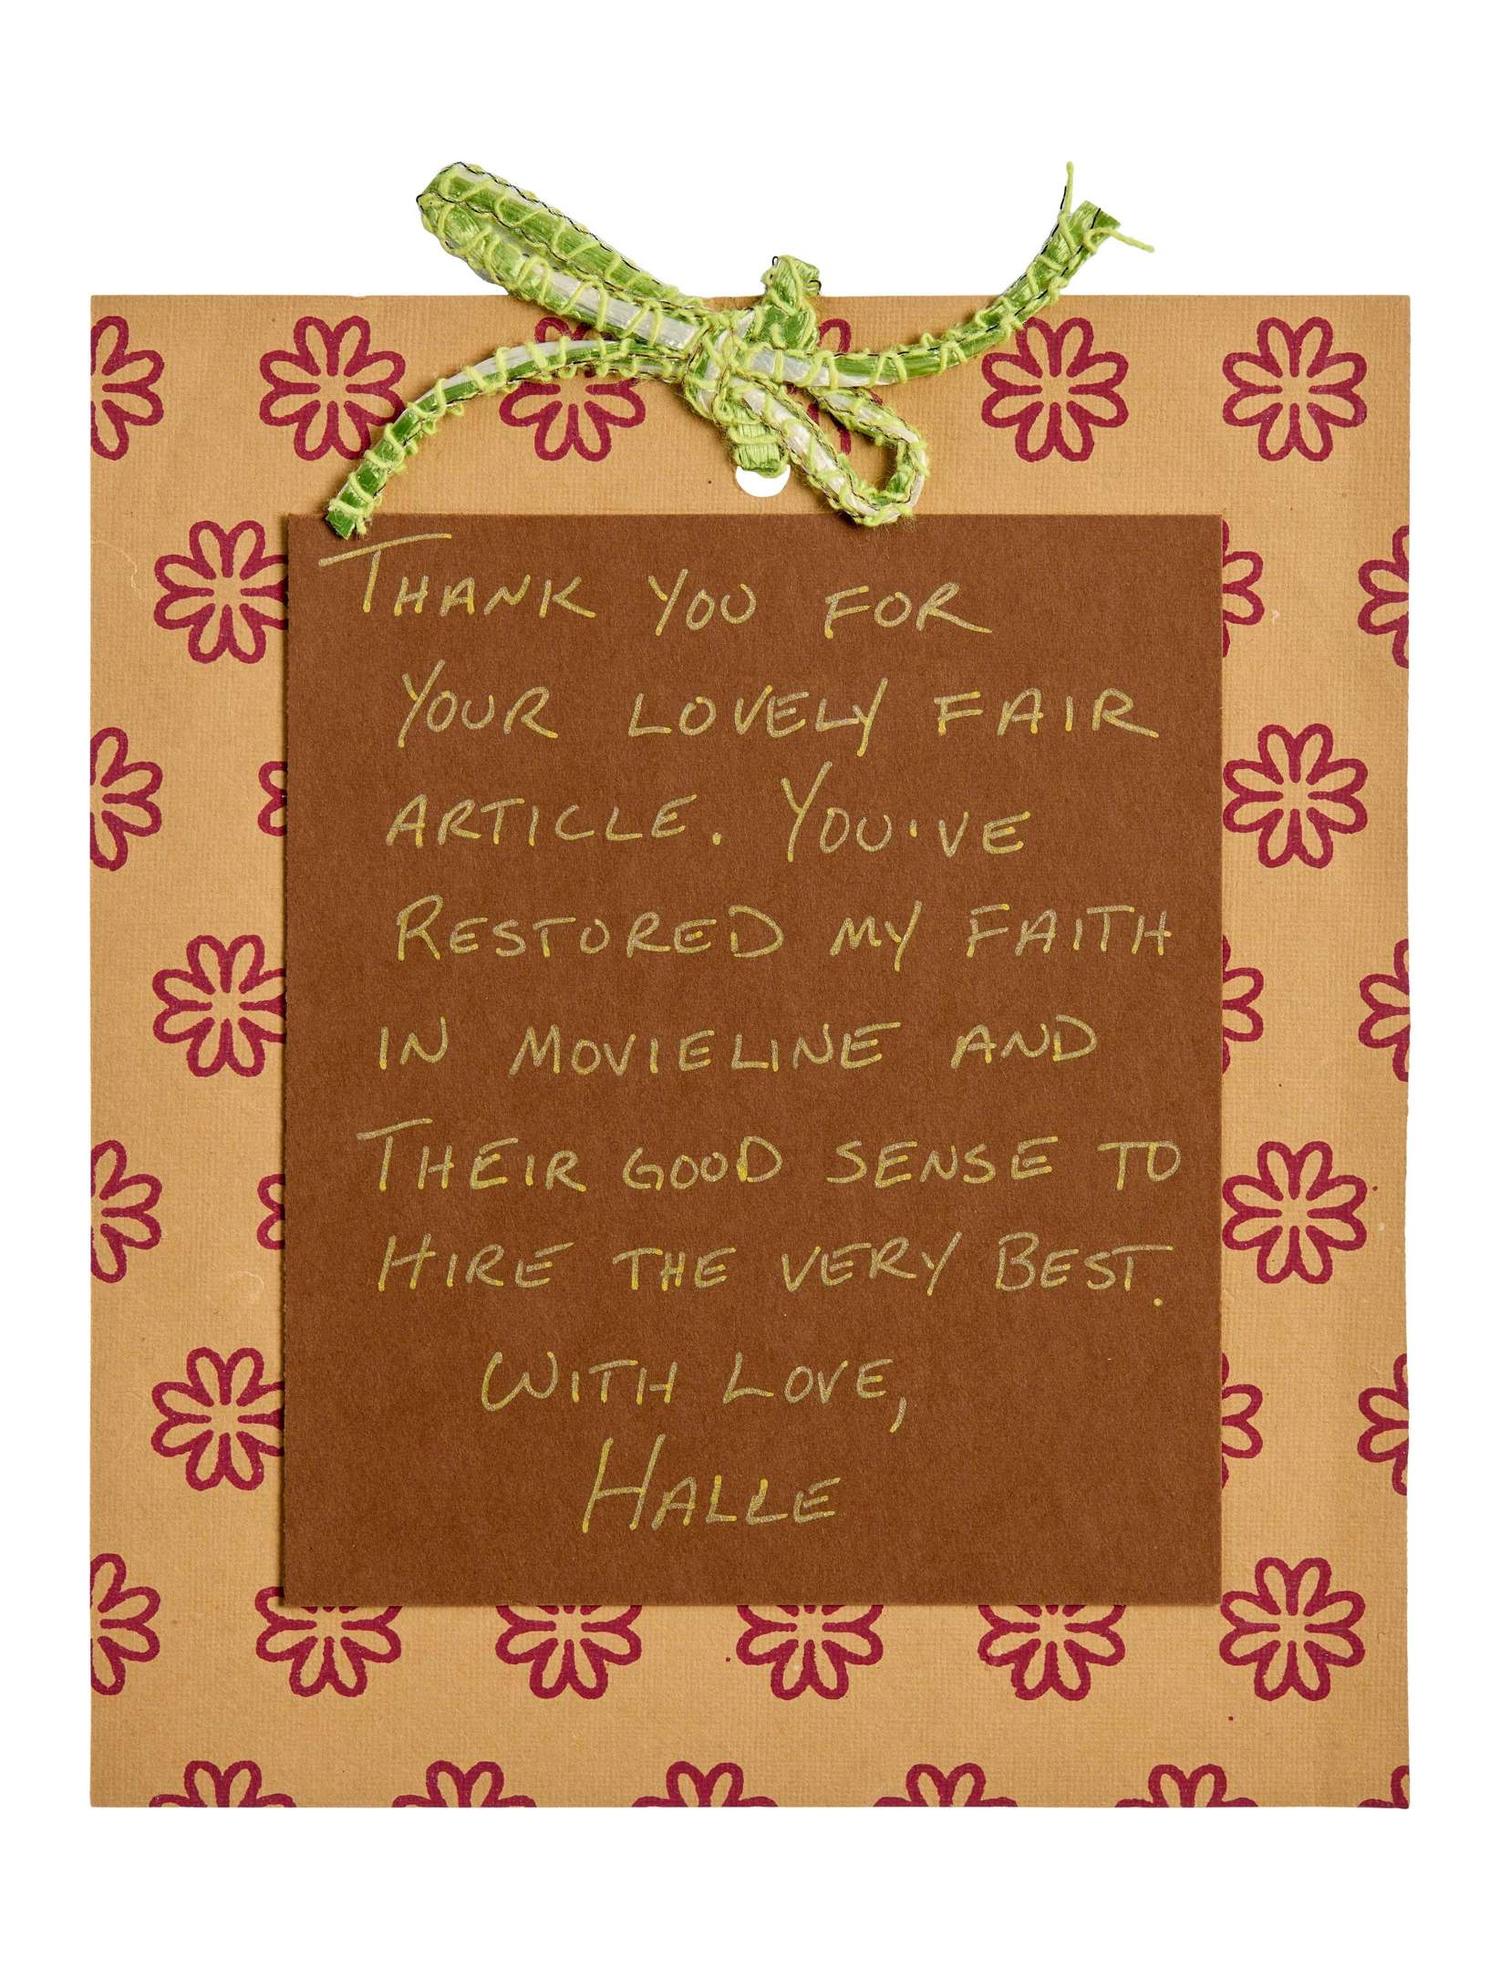 THANK YOU FOR
YOUR LOVELY FAIR
ARTICLE. YOU'VE
RESTORED MY FAITH
IN MOVIELINE AND
THEIR GOOD SENSE TO
HIRE THE VERY BEST.
WITH LOVE,
HALLE